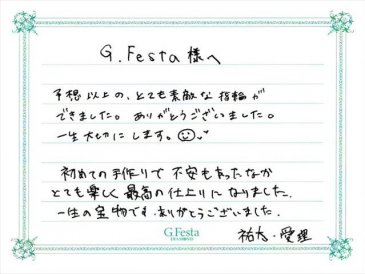 G.Festa様へ
予想以上の、とても素敵な指輪が
できました。ありがとうございました。
一生大切にします。
初めての手作りで不安もあったなか
とても楽しく最高の仕上りになりました。
一生の宝物です。ありがとうございました。
G.Festa
DIAMOND
・愛理